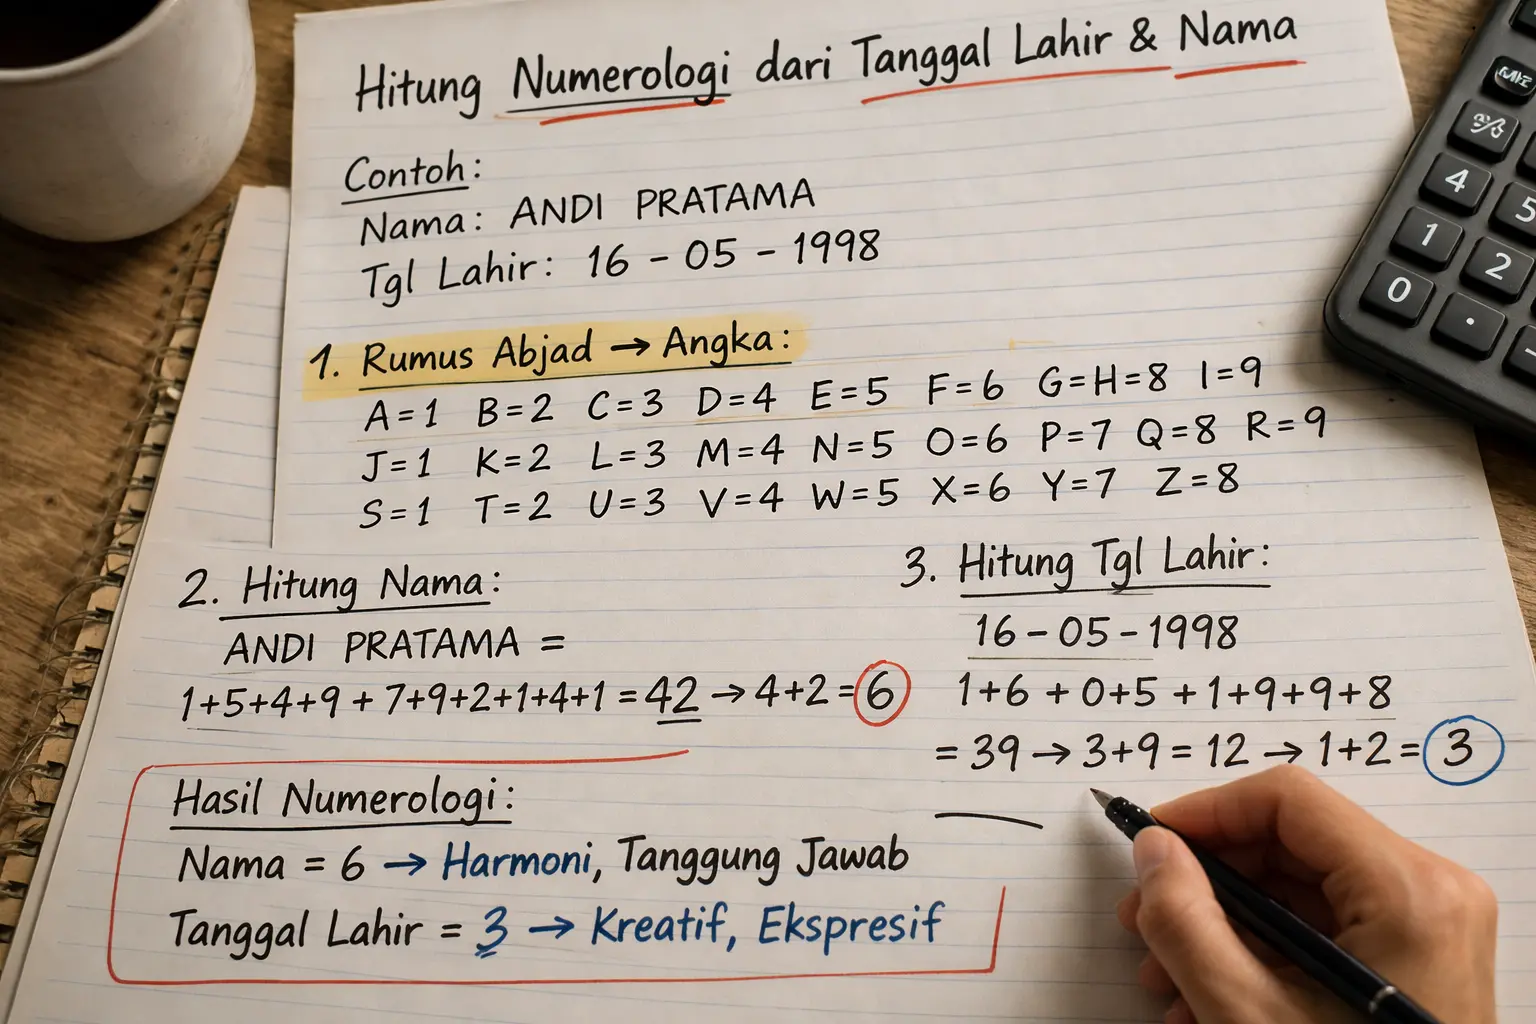 Hitung Numerologi dari Tanggal Lahir & Nama
Contoh:
Nama: ANDI PRATAMA
Tgl Lahir: 16 - 05 - 1998
1. Rumus Abjad → Angka:
A=1 B=2 C=3 D=4 E=5 F=6 G=H=8 I=9
J=1 K=2 L=3 M=4 N=5 O=6 P=7 Q=8 R=9
S=1 T=2 U=3 V=4 W=5 X=6 Y=7 Z=8
2. Hitung Nama:
ANDI PRATAMA =
1+5+4+9 + 7+9+2+1+4+1 = 42 → 4+2 = 6
3. Hitung Tgl Lahir:
16 - 05 - 1998
1+6 + 0+5 + 1+9+9+8
= 39 → 3+9 = 12 → 1+2 = 3
Hasil Numerologi:
Nama = 6 → Harmoni, Tanggung Jawab
Tanggal Lahir = 3 → Kreatif, Ekspresif
4
5
1
2
0
.